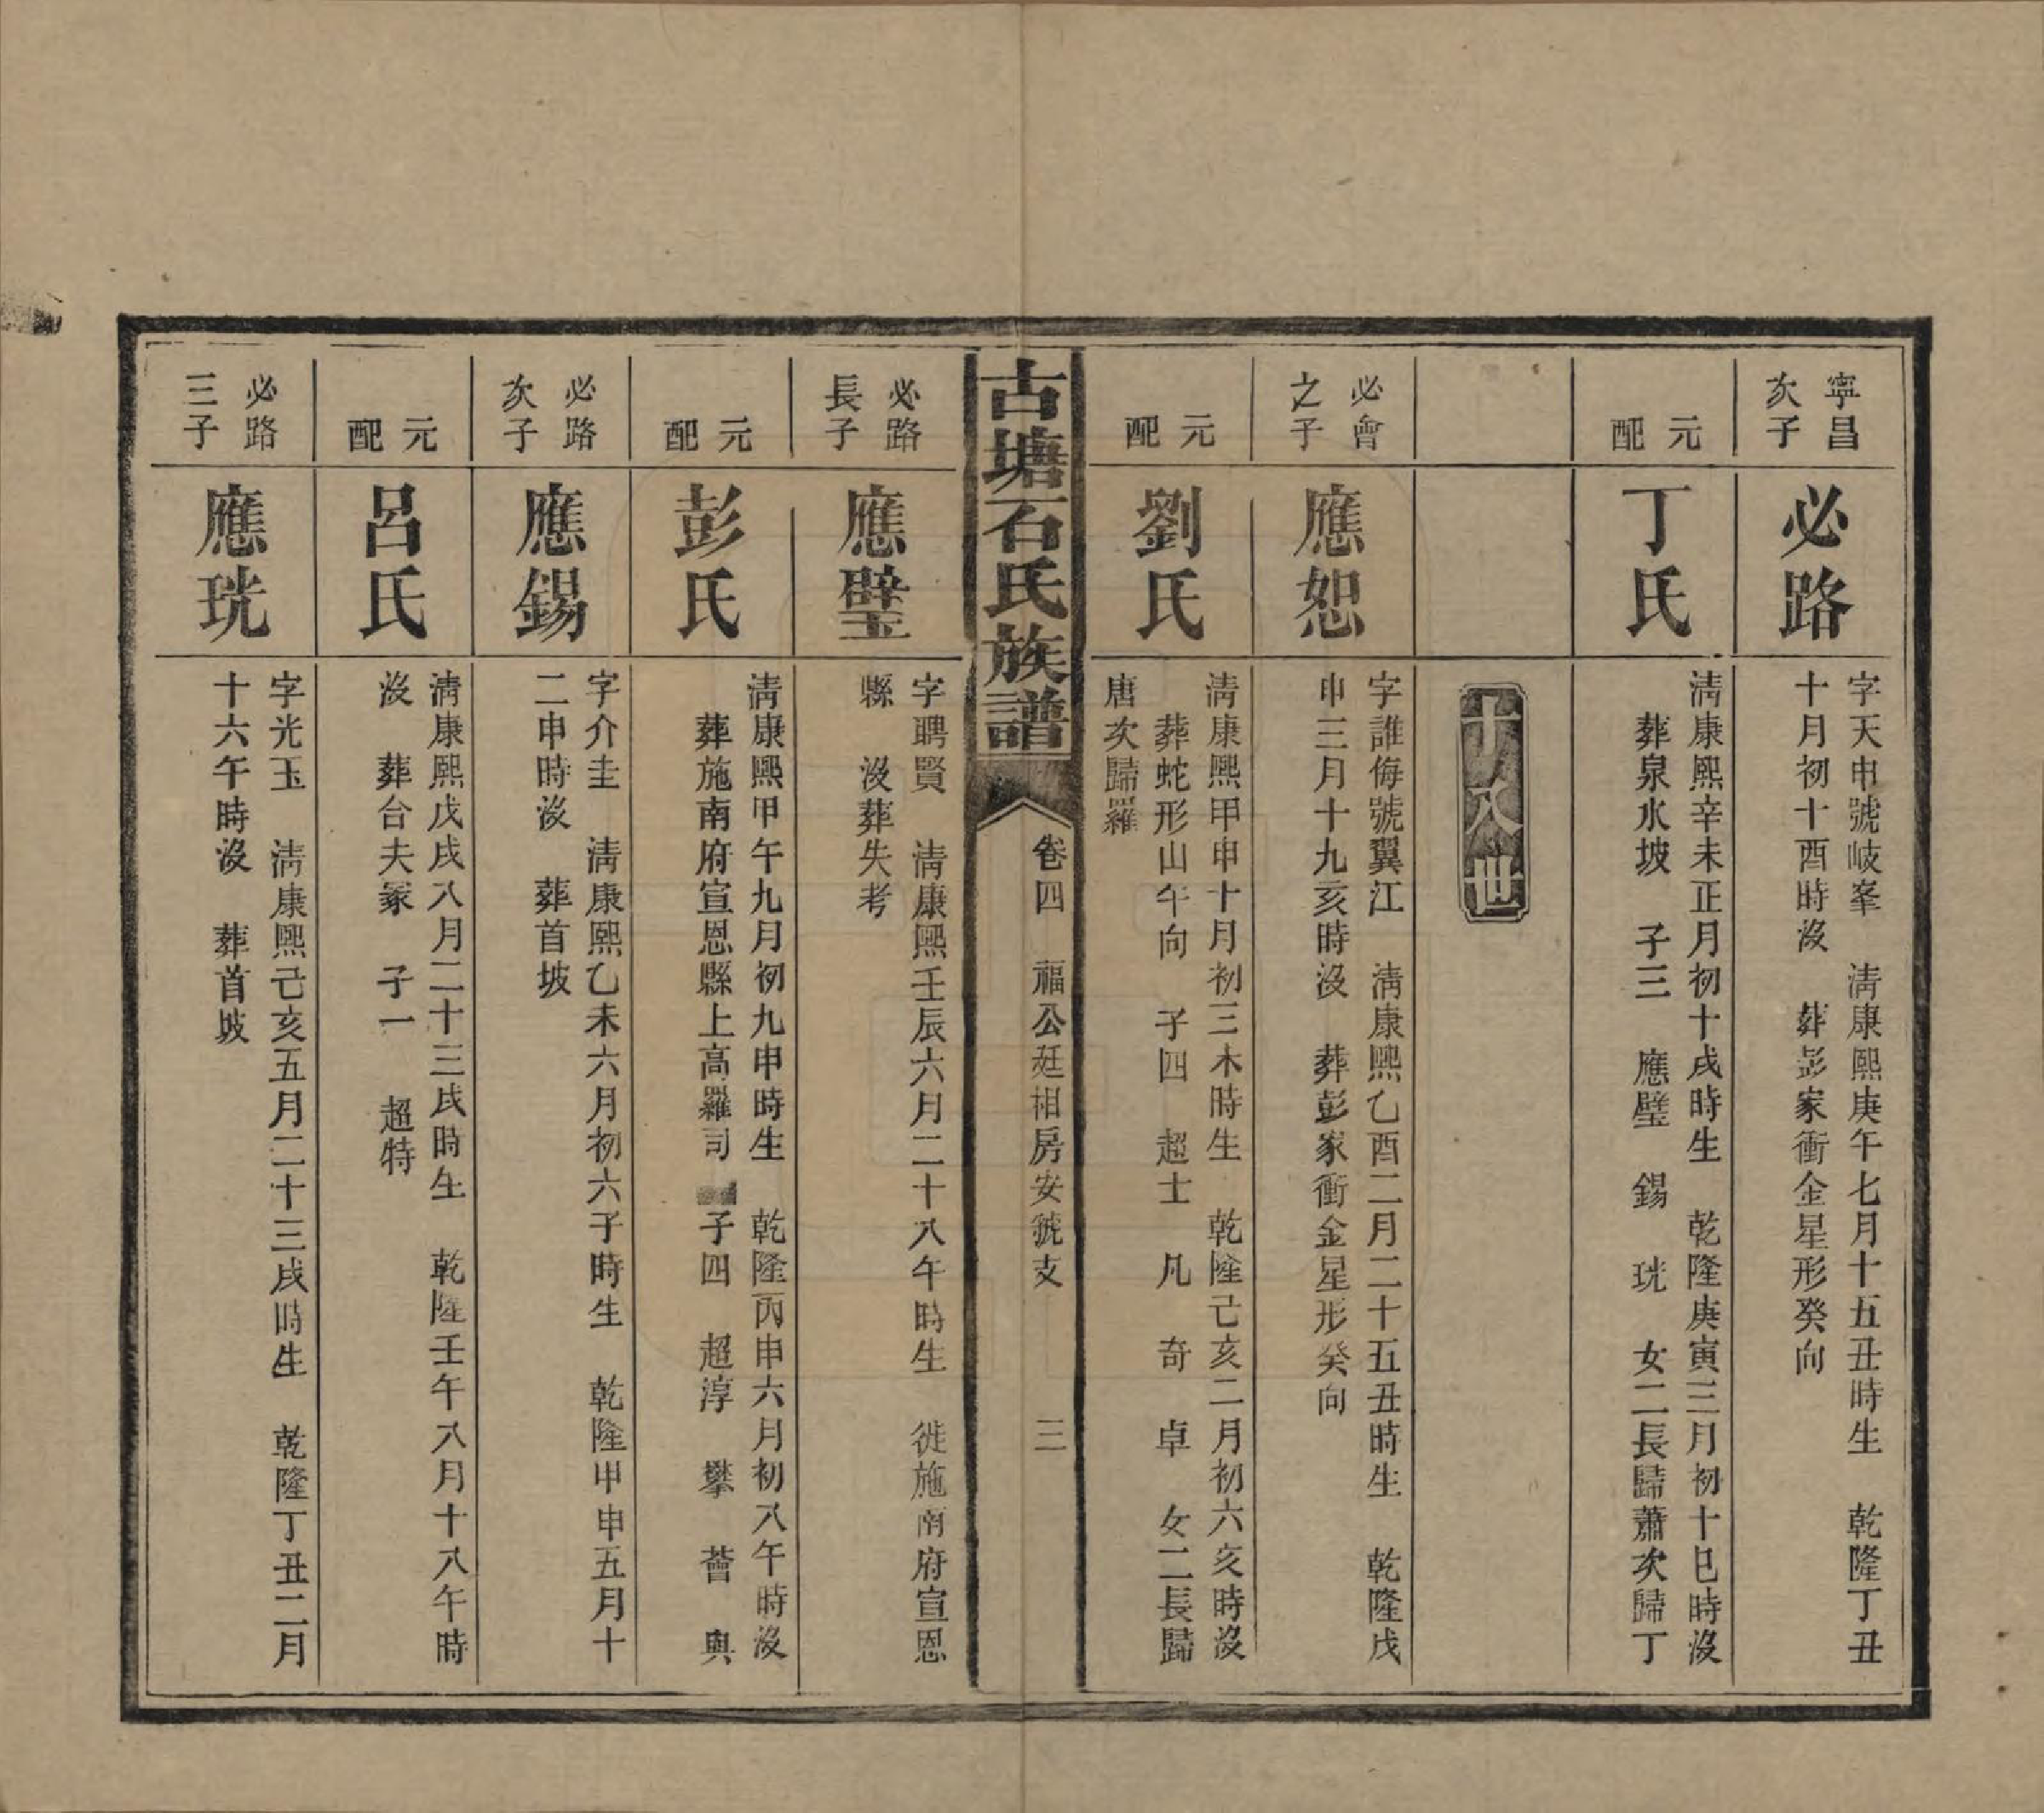 寧昌
次子
必路
字天申號岐峯　淸康熙庚午七月十五丑時生　乾隆丁丑
十月初十酉時歿　葬彭家衝金星形癸向
元
配
丁氏
淸康熙辛未正月初十戌時生　乾隆庚寅三月初十巳時歿
葬泉水坡　子三　應璧　錫　珖　女二長歸蕭次歸丁
十八世
必會
之子
應恕
字誰侮號翼江　淸康熙乙酉二月二十五丑時生　乾隆戊
申三月十九亥時歿　葬彭家衝金星形癸向
元
配
劉氏
淸康熙甲申十月初三未時生　乾隆己亥二月初六亥時歿
葬蛇形山午向　子四　超士　凡　奇　卓　女二長歸
唐次歸羅
古塘石氏族譜
卷四　福公廷相房安號支　三
必路
長子
應璧
字聘賢　淸康熙壬辰六月二十八午時生　徙施南府宣恩
縣　歿葬失考
元
配
彭氏
淸康熙甲午九月初九申時生　乾隆丙申六月初八午時歿
葬施南府宣恩縣上高羅司　子四　超淳　攀　薈　輿
必路
次子
應錫
字介圭　淸康熙乙未六月初六子時生　乾隆甲申五月十
二申時歿　葬首坡
元
配
呂氏
淸康熙戊戌八月二十三戌時生　乾隆壬午八月十八午時
歿　葬台夫冢　子一　超特
必路
三子
應珖
字光玉　淸康熙己亥五月二十三戌時生　乾隆丁丑二月
十六午時歿　葬首坡